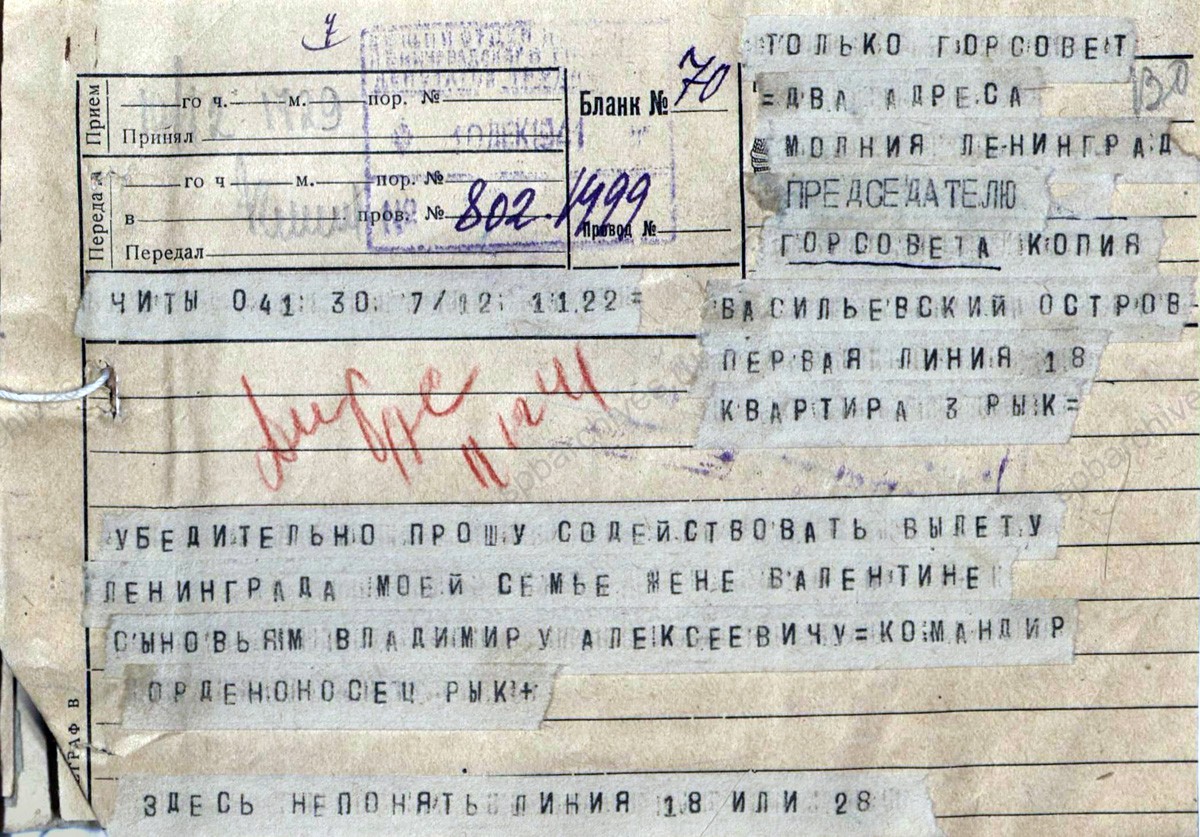 7
Прием
го ч. м. пор. №
Принял
Передал
го ч м. пор. №
в пров. № 802./1999
Передал
Бланк № 70
Провод №
10 ДЕК 1941
ТОЛЬКО ГОРСОВЕТ
=ДВА АДРЕСА
130
МОЛНИЯ ЛЕНИНГРАД
ПРЕДСЕДАТЕЛЮ
ГОРСОВЕТА КОПИЯ
ЧИТЫ 041 30 7/12 11.22=
ВАСИЛЬЕВСКИЙ ОСТРОВ
ПЕРВАЯ ЛИНИЯ 18
КВАРТИРА 3 РЫК=
УБЕДИТЕЛЬНО ПРОШУ СОДЕЙСТВОВАТЬ ВЫЛЕТУ
ЛЕНИНГРАДА МОЕЙ СЕМЬЕ ЖЕНЕ ВАЛЕНТИНЕ
СЫНОВЬЯМ ВЛАДИМИРУ АЛЕКСЕЕВИЧУ=КОМАНДИР
ОРДЕНОНОСЕЦ РЫК+
ЗДЕСЬ НЕПОНЯТЬ ЛИНИЯ 18 ИЛИ 28